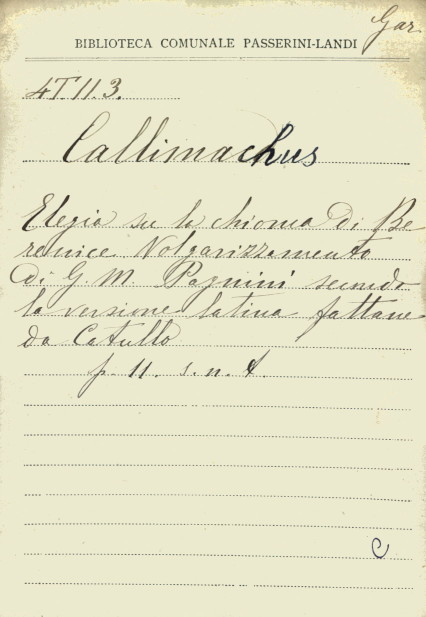 Gar
BIBLIOTECA COMUNALE PASSERINI-LANDI
4T.11.3.
Callimachus
Elegia su la chioma di Be
renice Volgarizzamento
di G. M. Pagnini secondo
la versione latina fattane
da Catullo
p. 11. s. n. t.
C